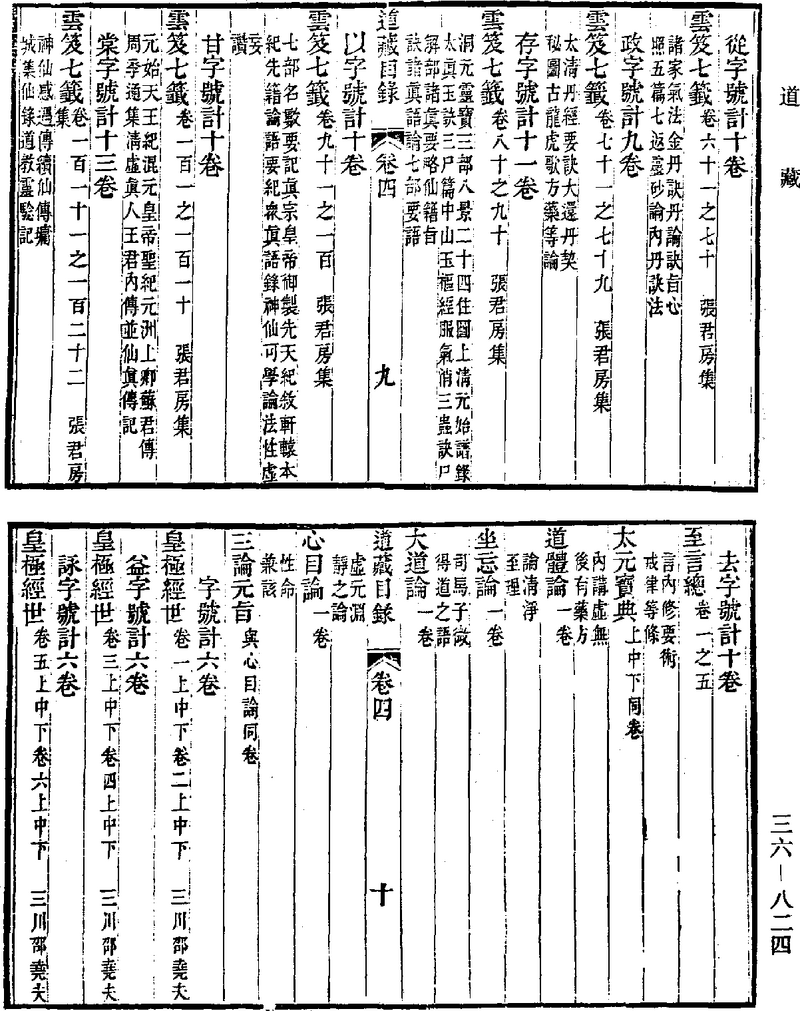 道藏
從字號計十卷
雲笈七籤卷六十一之七十　張君房集
諸家氣法金丹訣丹論訣旨心
照五篇七返靈砂論內丹訣法
政字號計九卷
雲笈七籤卷七十一之七十九　張君房集
太清丹經要訣大還丹契
秘圖古龍虎歌方藥等論
存字號計十一卷
雲笈七籤卷八十之九十　張君房集
洞元靈寶三部八景二十四住圖上清元始譜錄
太真玉訣三尸篇中山玉樞經服氣消三蟲訣尸
解部諸真要略仙籍旨
訣諸真語論七部要語
道藏目錄　卷四　九
以字號計十卷
雲笈七籤卷九十一之一百　張君房集
七部名數要記真宗皇帝御製先天紀敘軒轅本
紀先籍論語要紀眾真語錄神仙可學論法性虛
妄
讚
甘字號計十卷
雲笈七籤卷一百一之一百一十　張君房集
元始天王紀混元皇帝聖紀元洲上卿蘇君傳
周季通集清虛真人王君內傳並仙真傳記
棠字號計十三卷
雲笈七籤卷一百一十一之一百二十二　張君房
集
神仙感遇傳續仙傳墉
城集仙錄道教靈驗記
去字號計十卷
至言總卷一之五
言內修要術
戒律等條
太元寶典上中下同卷
內講虛無
後有藥方
道體論一卷
論清淨
至理
坐忘論一卷
司馬子微
得道之語
大道論一卷
道藏目錄　卷四　十
虛元淵
靜之論
心目論一卷
性命
兼該
三論元旨與心目論同卷
字號計六卷
皇極經世卷一上中下卷二上中下　三川邵堯夫
益字號計六卷
皇極經世卷三上中下卷四上中下　三川邵堯夫
詠字號計六卷
皇極經世卷五上中下卷六上中下　三川邵堯夫
三六－八二四